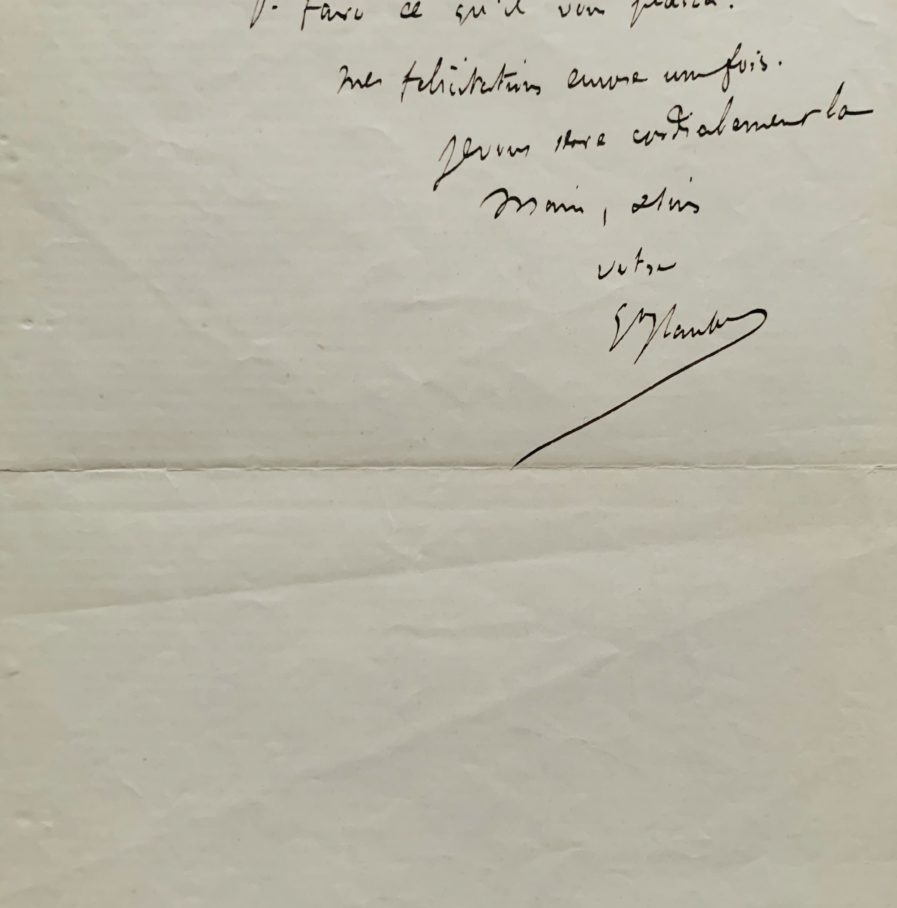 faire ce qu'il vous plaira.
Mes félicitations encore une fois.
Je vous serre cordialement la
main, et suis
votre
Gve Flaubert